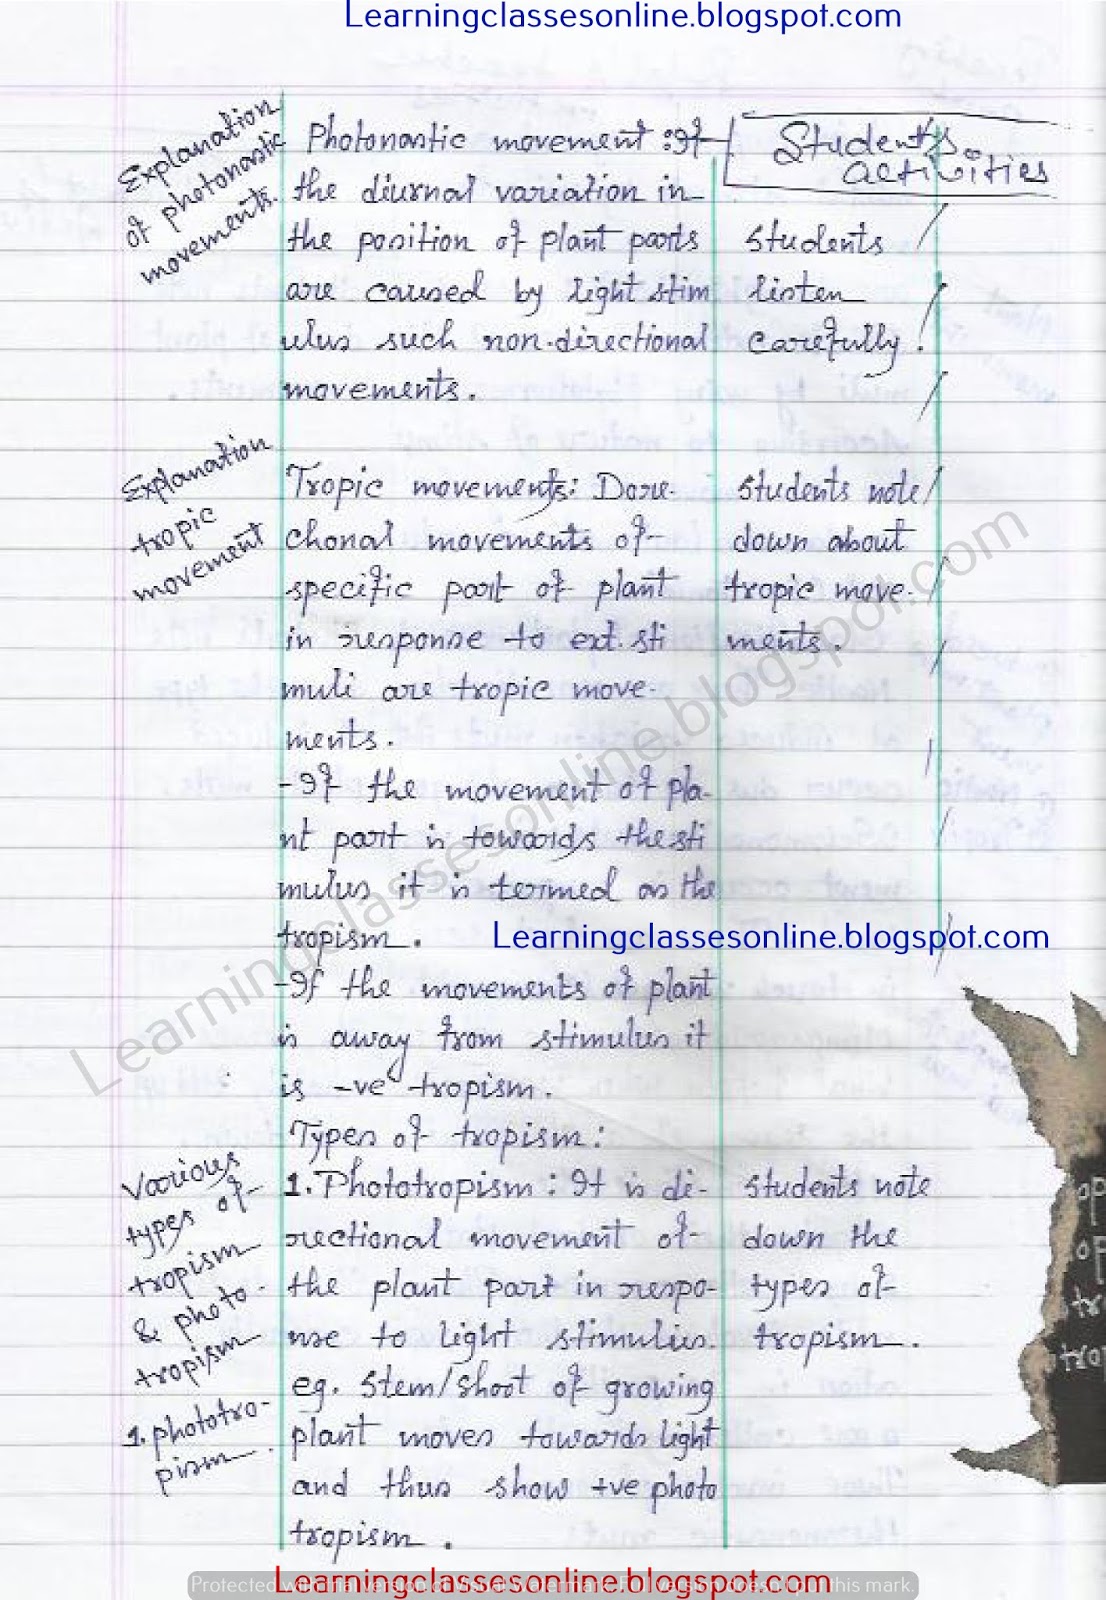 Learningclassesonline.blogspot.com
Explanation
of photonastic
movements.
Photonastic movement : If
the diurnal variation in
the position of plant parts
are caused by light stim
ulus such non-directional
movements.
Students
activities
Students
listen
carefully.
Explanation
tropic
movement
Tropic movements: Dire-
chonal movements of
specific part of plant
in response to ext. sti
muli are tropic move-
ments.
Students note
down about
tropic move-
ments.
- If the movement of pla-
nt part is towards the sti
mulus it is termed as the
tropism.
Learningclassesonline.blogspot.com
- If the movements of plant
is away from stimulus it
is -ve tropism.
Learningclassesonline.blogspot.com
Types of tropism:
Various
types of
tropism
& photo-
tropism
1. phototro-
pism
1. Phototropism : It is di-
rectional movement of
the plant part in respo-
nse to light stimulus.
eg. Stem/shoot of growing
plant moves towards light
and thus show +ve photo
tropism.
Students note
down the
types of
tropism.
Learningclassesonline.blogspot.com